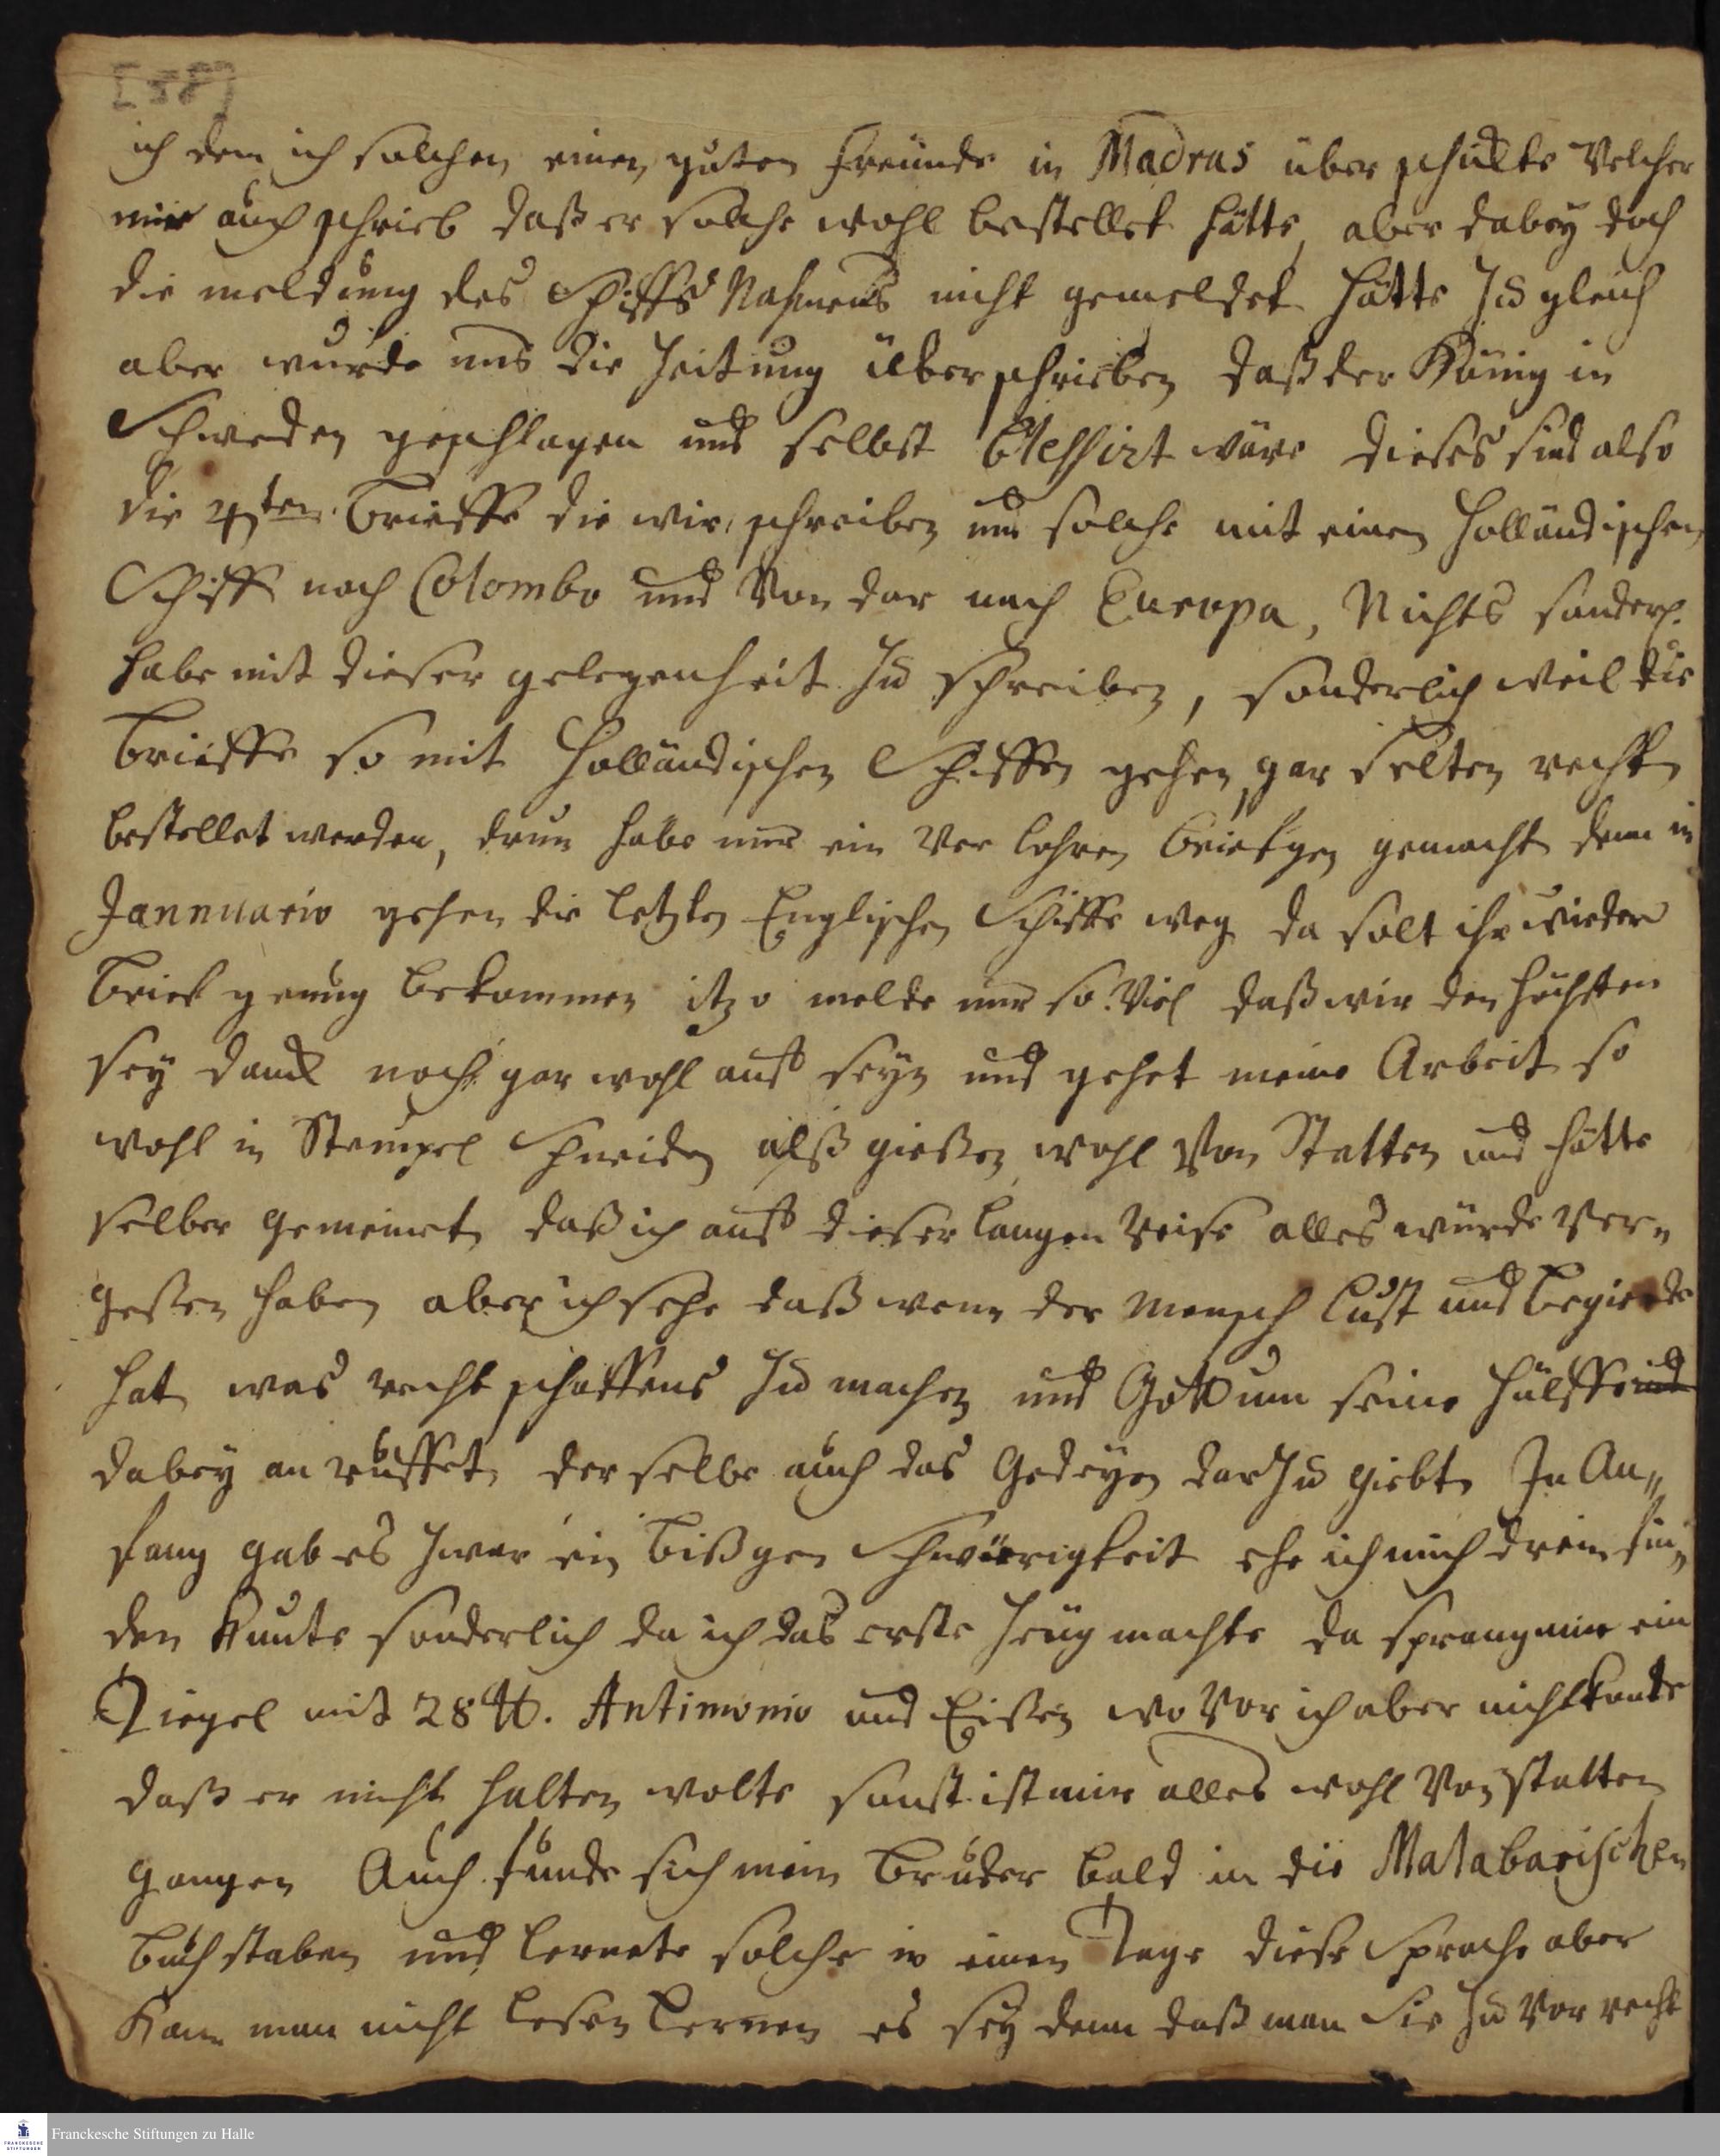 [58]
ich dem ich solchen einen guten Freunde in Madras überschückte Welcher
mir auch schrieb daß er solche wohl bestellet hätte, aber dabey doch
die meldung des Schiffs Nahmens nicht gemeldet hätte Zu gleich
aber wurde uns die Zeitung überschrieben daß der König in
Schweden geschlagen und selbst blessirt wäre dieses sind also
die 4ten Brieffe die wir schreiben und solche mit einen Holländischen
Schiff nach Colombo und Von dar nach Europa, Nichts sonderl.
habe mit dieser gelegenheit Zu schreiben, sonderlich weil die
Brieffe so mit Holländischen Schiffen gehen gar selten recht
bestellet werden, drum habe nur ein Verlohren briefgen gemacht denn in
Jannuario gehen die letzten Englischen Schiffe weg da solt ihr wieder
Brief genug bekommen itzo melde nur so Viel daß wir den höchsten
sey danck noch gar wohl auf seyn und gehet meine Arbeit so
wohl in Stempel Schneiden alß gießen wohl Von Statten und hätte
selber gemeinet daß ich auf dieser langen Reise alles würde Ver=
geßen haben aber ich sehe daß wenn der Mensch Lust und Begierde
hat was recht schaffens Zu machen und Gott um seine Hülffe und
dabey an ruffet derselbe auch das Gedeyen dar Zu giebt In An=
fang gab es zwar ein bißgen Schwierigkeit ehe ich mich drein fin=
den kunte sonderlich da ich das erste Zeug machte da sprang mir ein
Tiegel mit 28 ℔. Antimonio und Eißen wo Vor ich aber nicht konte
daß er nicht halten wolte sonst ist mir alles wohl Von statten
gangen Auch funde sich mein Bruder bald in die Malabarischen
Buchstaben und lernete solche in einen Tage diese Sprache aber
Kan man nicht lesen lernen es sey denn daß man Sie Zu Vor recht
Franckesche Stiftungen zu Halle